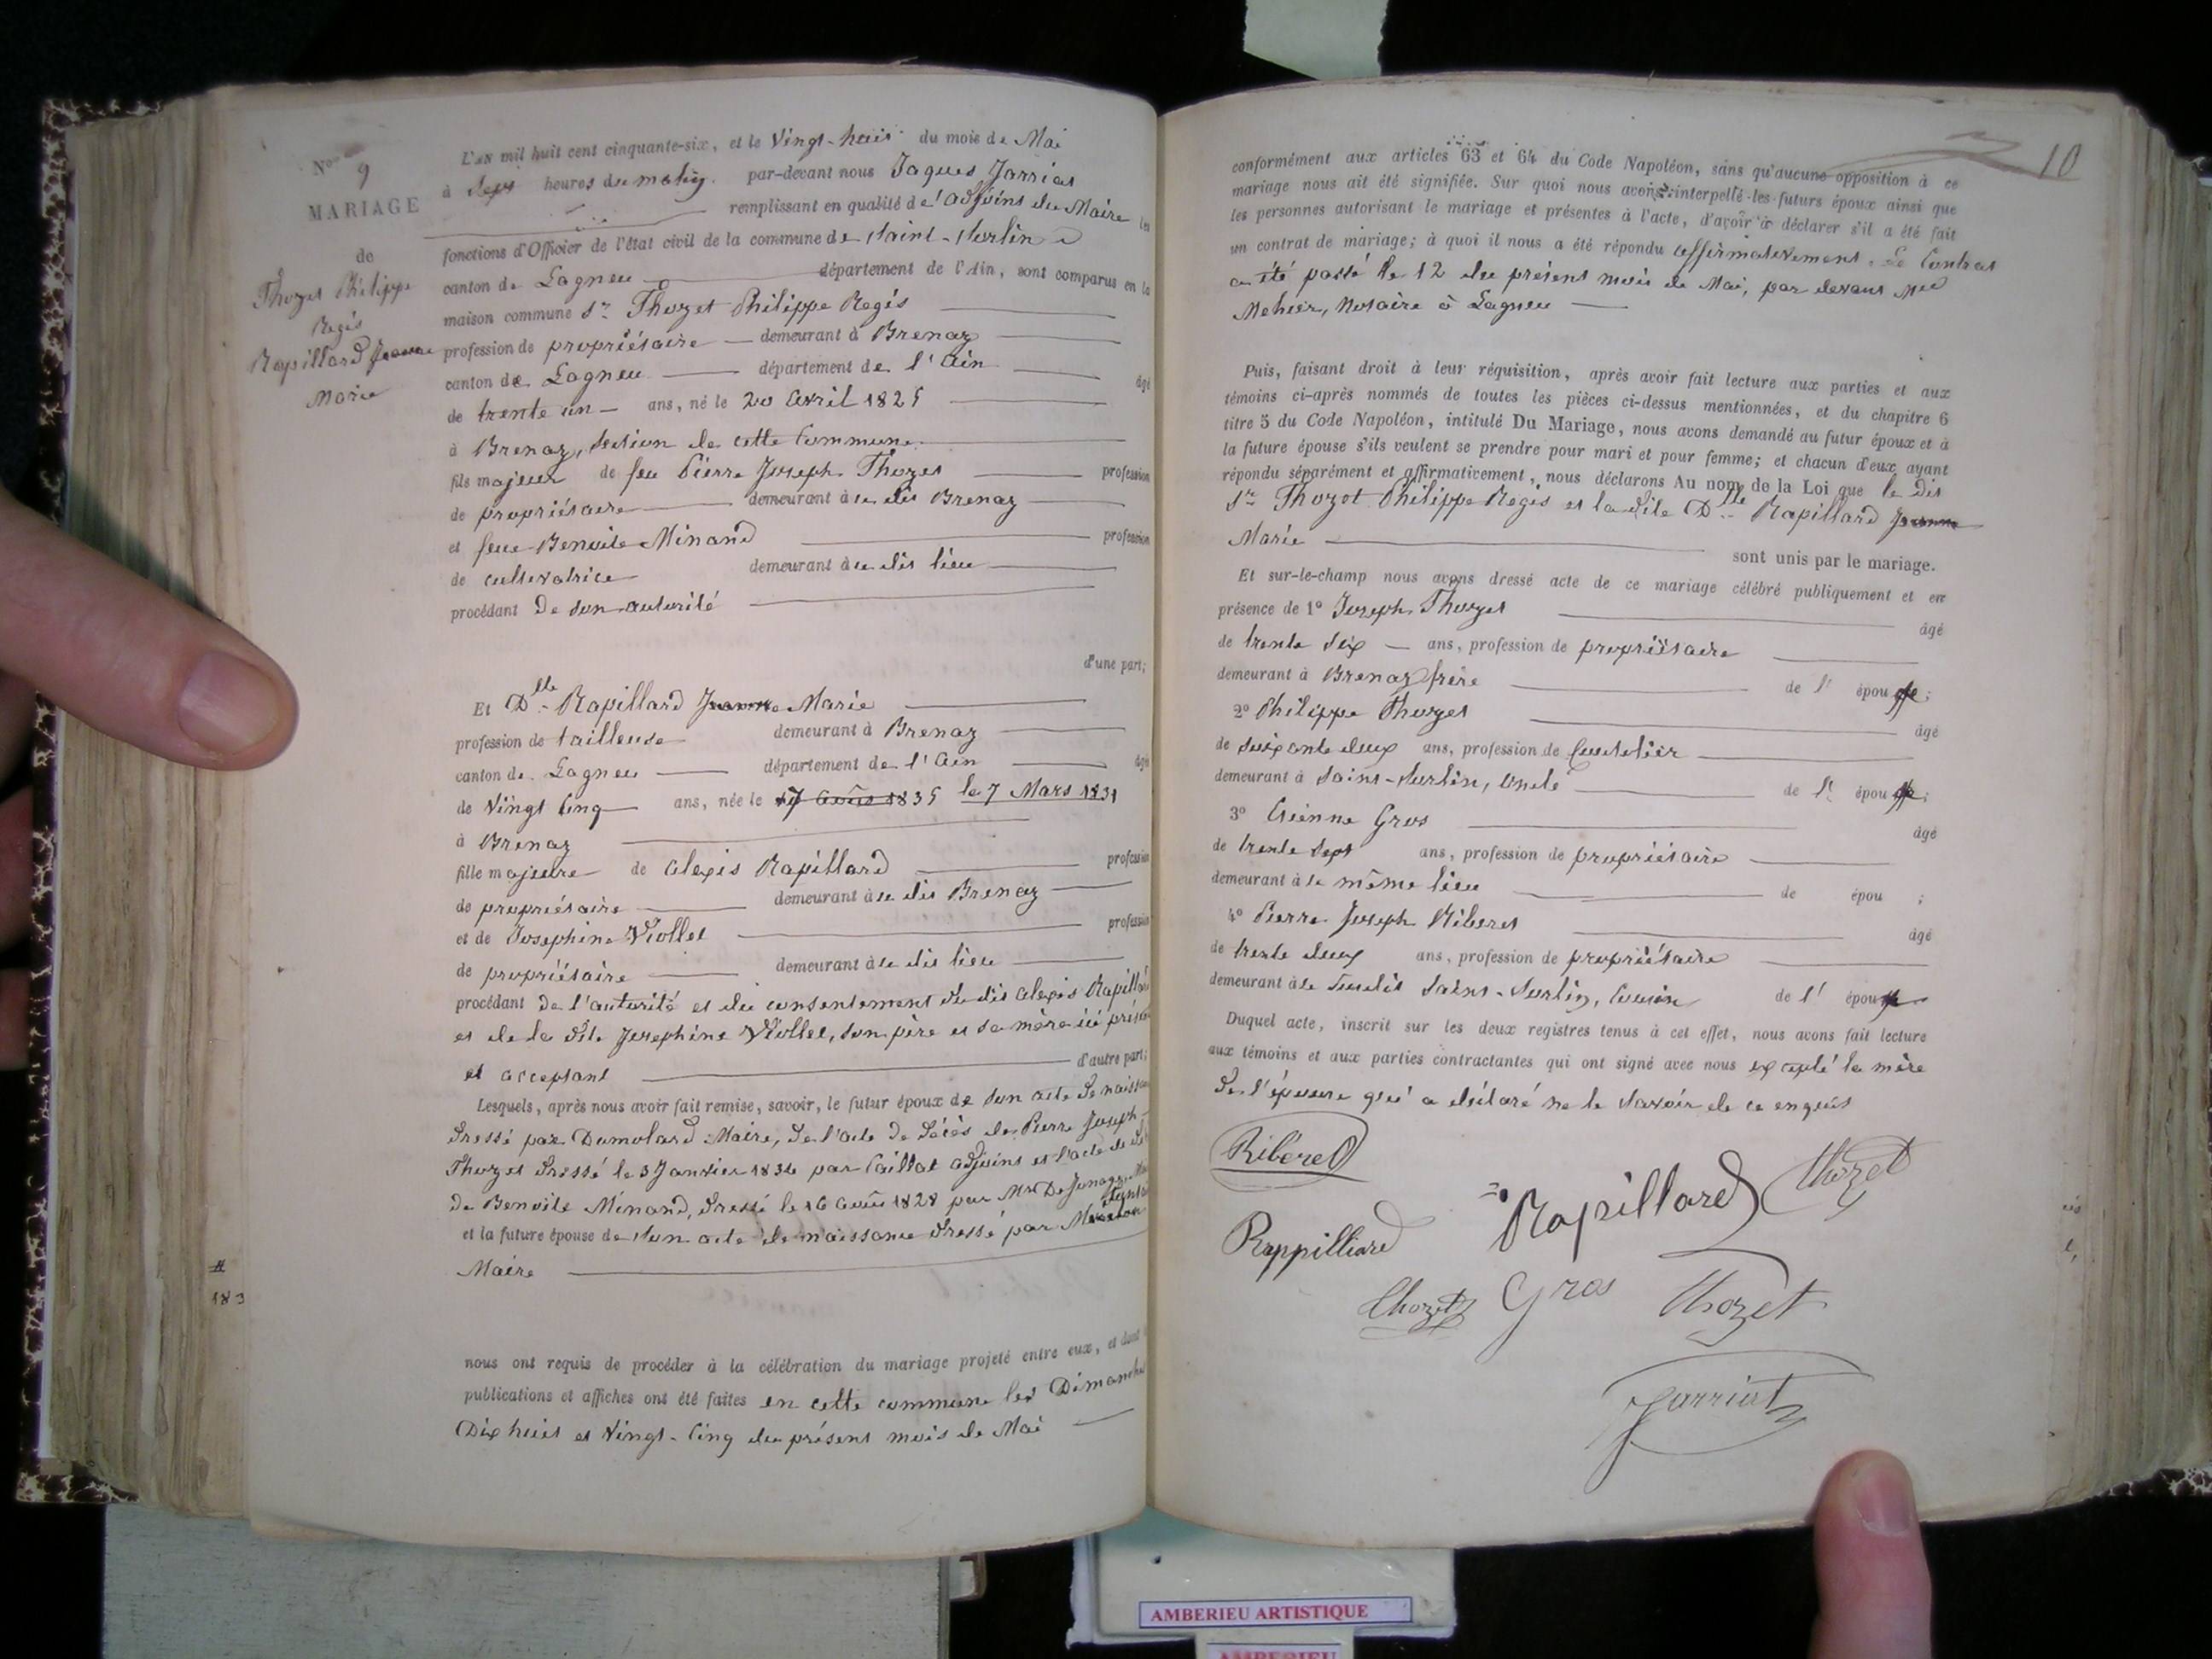 Nos 9
MARIAGE
de
Thozet Philippe
Regis
Rapillard Jeanne
Marie
L'AN mil huit cent cinquante-six, et le Vingt-huit du mois de Mai
à heures du matin. par-devant nous Jaques Jarriat
remplissant en qualité de l'adjoint du Maire les
fonctions d'Officier de l'état civil de la commune de Saint-Sorlin
canton de Lagneu département de l'Ain, sont comparus en la
maison commune Sr Thozet Philippe Regis
profession de propriétaire demeurant à Brenaz
canton de Lagneu département de l'Ain âgé
de trente un ans, né le 20 Avril 1825
à Brenaz, section de cette Commune
fils majeur de feu Pierre Joseph Thozet profession
de propriétaire demeurant à u dit Brenaz
et feue Benoite Minand profession
de cultivatrice demeurant à u dit lieu
procédant De son autorité
d'une part;
Et Dlle Rapillard Jeanne Marie
profession de tailleuse demeurant à Brenaz
canton de Lagneu département de l'Ain âgé
de Vingt Cinq ans, née le 17 Août 1835 le 7 Mars 1831
à Brenaz
fille majeure de Alexis Rapillard profession
de propriétaire demeurant à u dit Brenaz
et de Josephine Viollet profession
de propriétaire demeurant à u dit lieu
procédant de l'autorité et du consentement du dit Alexis Rapillard
et de la dite Josephine Viollet, son père et sa mère ici présents
et acceptant d'autre part;
Lesquels, après nous avoir fait remise, savoir, le futur époux de son acte de naissance
dressé par Dumolard Maire, de l'acte de décès de Pierre Joseph
Thozet dressé le 3 Janvier 1834 par Caillat adjoint et l'acte de
de Benoite Minand, dressé le 16 Août 1828 par Mr De
et la future épouse de son acte de naissance dressé par
Maire
183
nous ont requis de procéder à la célébration du mariage projeté entre eux, et dont
publications et affiches ont été faites en cette commune les Dimanche
Dix huit et Vingt-Cinq du présent mois de Mai
10
conformément aux articles 63 et 64 du Code Napoléon, sans qu'aucune opposition à ce
mariage nous ait été signifiée. Sur quoi nous avons interpellé les futurs époux ainsi que
les personnes autorisant le mariage et présentes à l'acte, d'avoir à déclarer s'il a été fait
un contrat de mariage; à quoi il nous a été répondu affirmativement. Le Contrat
a été passé le 12 du présent mois de Mai, par devant Me
Mehier, Notaire à Lagneu
Puis, faisant droit à leur réquisition, après avoir fait lecture aux parties et aux
témoins ci-après nommés de toutes les pièces ci-dessus mentionnées, et du chapitre 6
titre 5 du Code Napoléon, intitulé Du Mariage, nous avons demandé au futur époux et à
la future épouse s'ils veulent se prendre pour mari et pour femme; et chacun d'eux ayant
répondu séparément et affirmativement, nous déclarons Au nom de la Loi que le dit
Sr Thozet Philippe Regis et la dite Dlle Rapillard Jeanne
Marie sont unis par le mariage.
Et sur-le-champ nous avons dressé acte de ce mariage célébré publiquement et en
présence de 1° Joseph Thozet âgé
de trente six ans, profession de propriétaire
demeurant à Brenaz frère de l' épou
2° Philippe Thozet âgé
de soixante deux ans, profession de Coutelier
demeurant à Saint-Sorlin, oncle de l' épou
3° Etienne Gros âgé
de trente sept ans, profession de propriétaire
demeurant à u même lieu de épou ;
4° Pierre Joseph Riberet âgé
de trente deux ans, profession de propriétaire
demeurant à u susdit Saint-Sorlin, Cousin de l' époux
Duquel acte, inscrit sur les deux registres tenus à cet effet, nous avons fait lecture
aux témoins et aux parties contractantes qui ont signé avec nous excepté la mère
de l'épouse qui a déclaré ne le savoir de ce enquis
Riberet
Rapillard Thozet
Rappilliard
Thozet Gros Thozet
Jarriat
AMBERIEU ARTISTIQUE
AMBERIEU